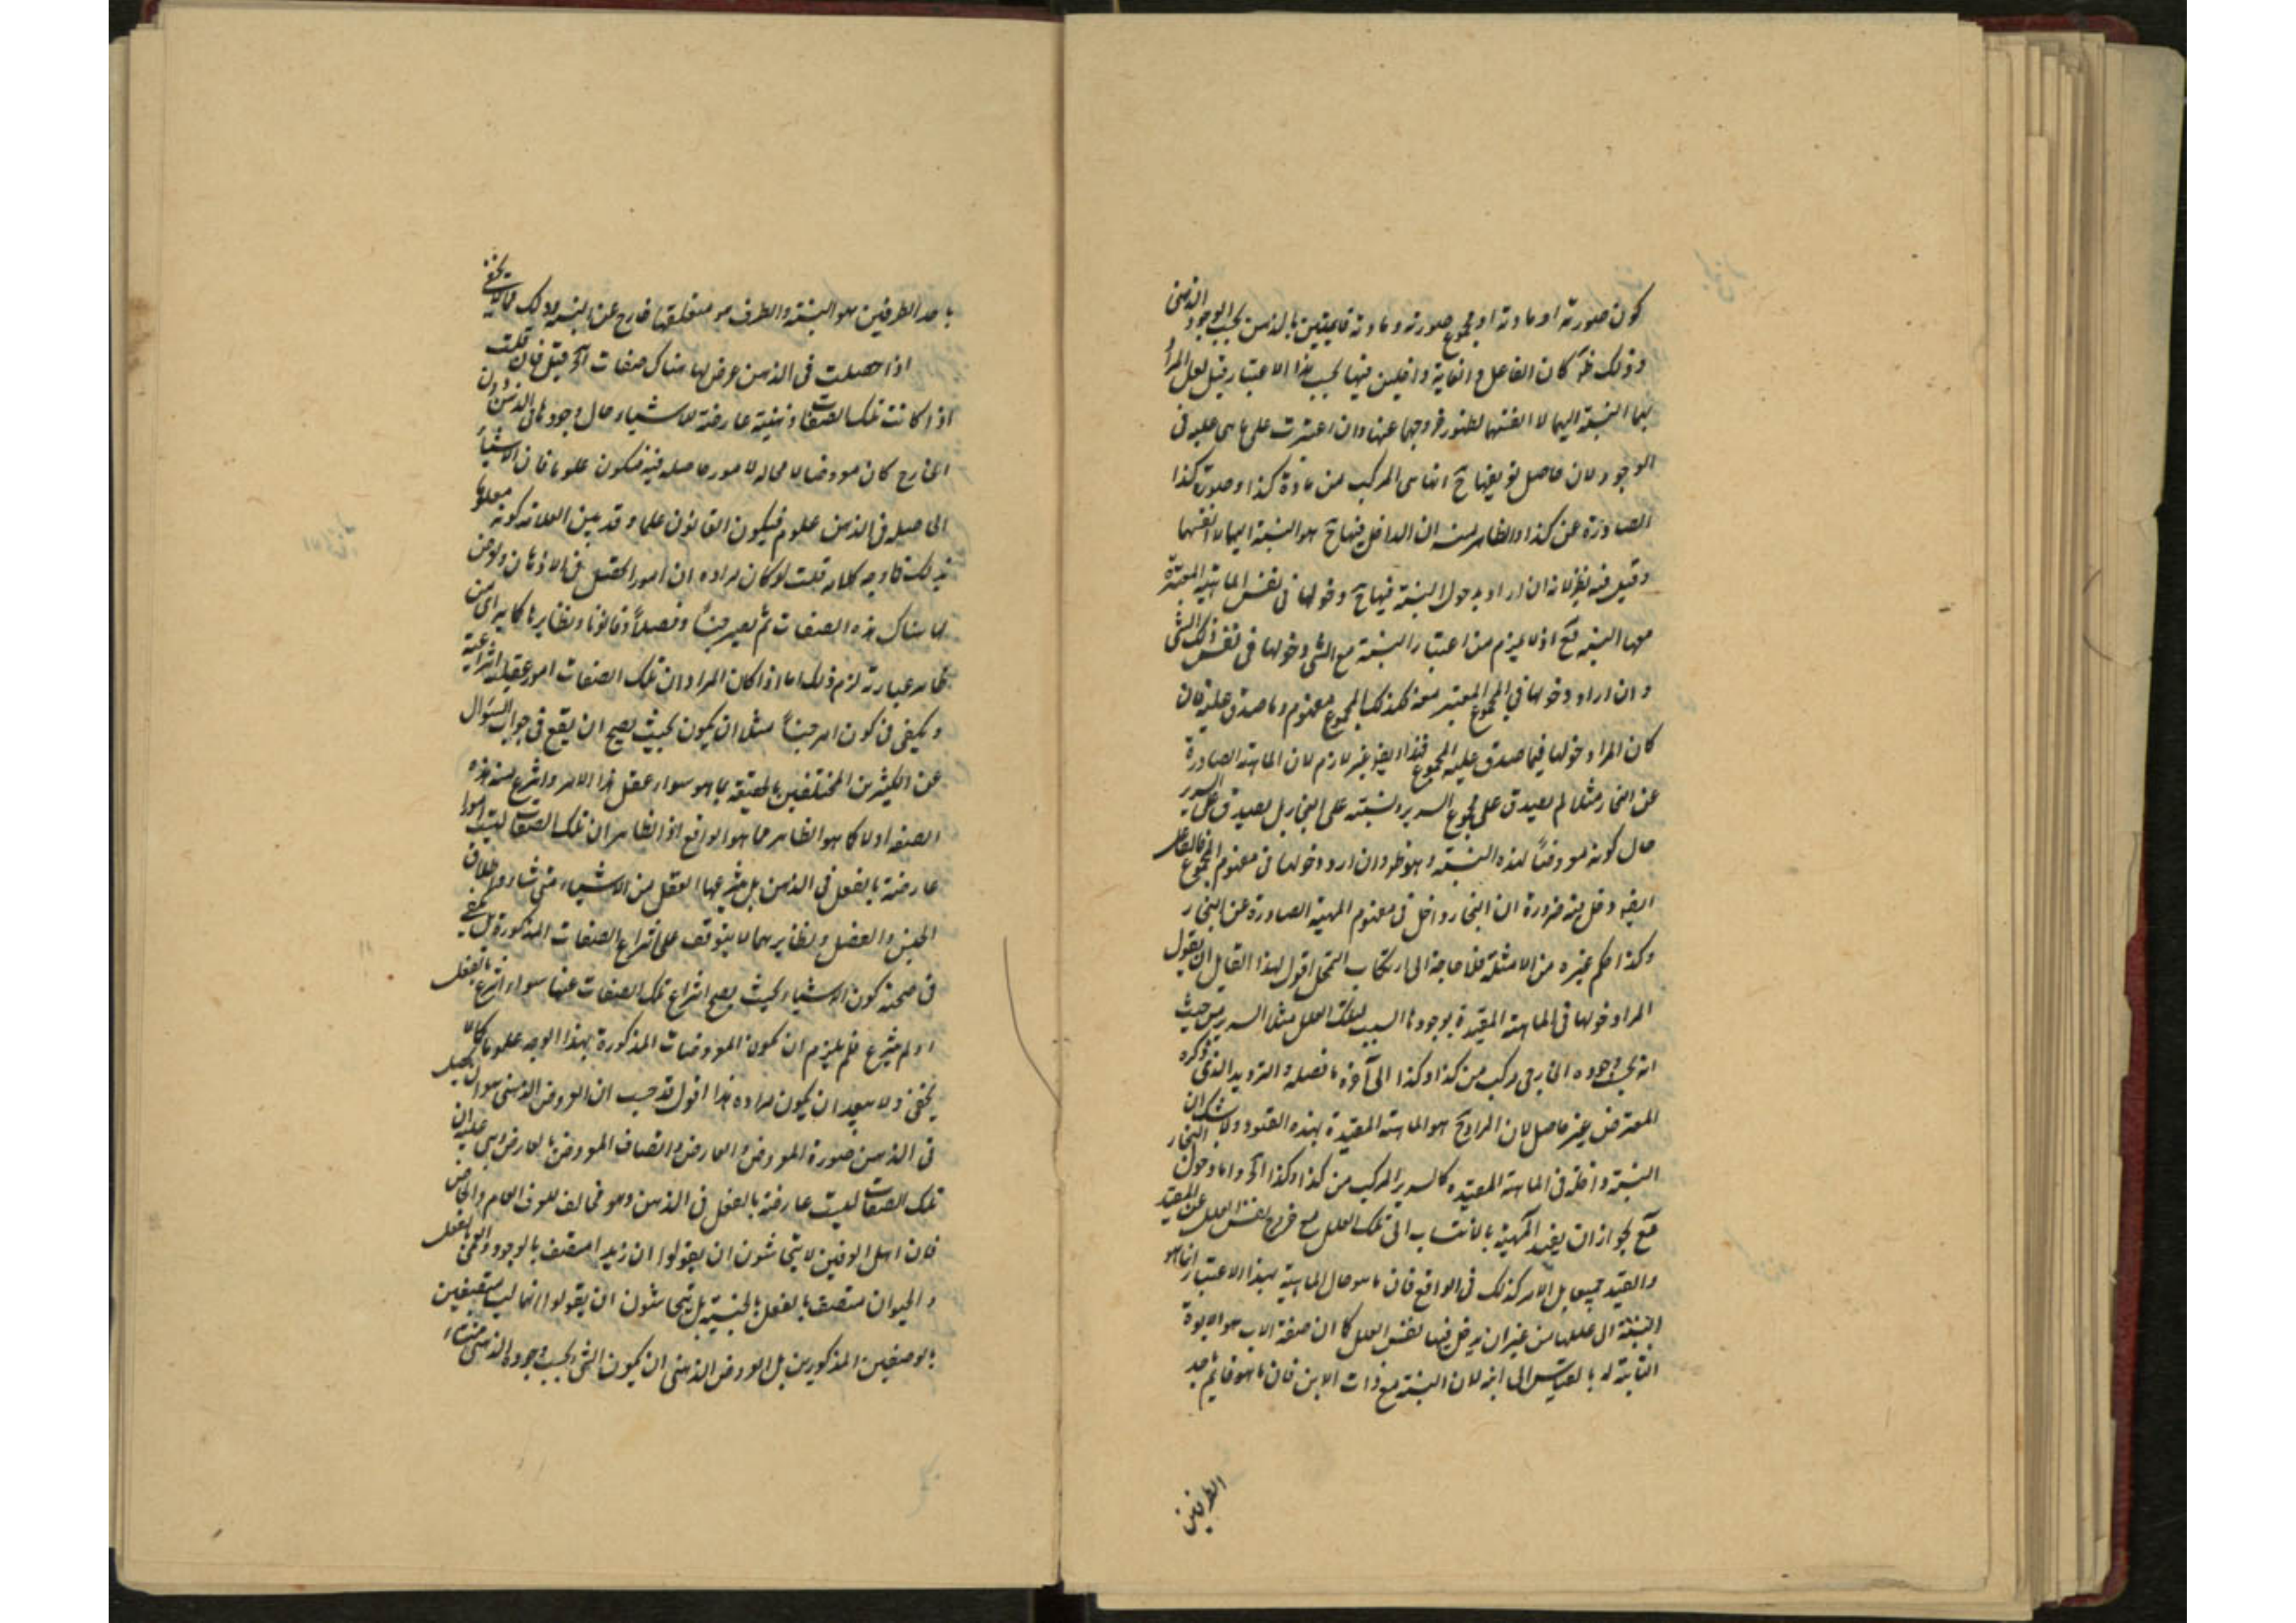 كون صورته او مادته او مجموع صورته ومادته قايمتين بالذهن بحسب الوجود الذهنى
وذلك ظ كان الفاعل والغاية داخلين فيها بحسب هذا الاعتبار قيل لعل المراد
بهما النسبة اليهما لا انفسهما لظهور خروجهما عنها وان اعتبرت على ما هى عليه فى
الوجود لان حاصل تعريفها ح انها هى المركب من مادة كذا وصورة كذا
الصادرة عن كذا والظاهر منه ان الداخل فيها ح هو النسبة اليهما لا انفسهما
وقيل فيه نظر لانه ان اراد بدخول النسبة فيها ح دخولها فى نفس الماهية المعتبرة
معها النسبة فمع اذ لا يلزم من اعتبار النسبة مع الشى دخولها فى نفس ذلك الشى
وان اراد دخولها فى المجموع المعتبر معه فلذلك المجموع مفهوم وما صدق عليه فان
كان المراد دخولها فيما صدق عليه المجموع فهذا ايضا غير لازم لان الماهية الصادرة
عن النجار مثلا لم يصدق على مجموع السرير ونسبته على النجار بل يصدق على السرير
حال كونه معروضاً لهذه النسبة وهو ظ وان اراد دخولها فى مفهوم المجموع فالفاعل
ايضا دخل فيه ضرورة ان النجار داخل فى مفهوم المهية الصادرة عن النجار
وكذا حكم غيره من الامثلة فلا حاجة الى ارتكاب التمحل اقول لهذا القايل ان يقول
المراد دخولها فى الماهية المقيدة بوجودها المسبب لتلك العلل مثلا السرير من حيث
انه بحسب وجوده الخارجى مركب من كذا وكذا الى آخره ما فصله والترديد الذى ذكره
المعترض غير حاصل لان المراد ح هو الماهية المقيدة بهذه القيود ولا شك ان
النسبة داخلة فى الماهية المقيدة كالسرير المركب من كذا وكذا الخ واما دخول النجار
فمع لجواز ان يقيد المهية بالانتساب الى تلك العلل مع خروج نفس العلل عن المقيد
والقيد جميعا بل الامر كذلك فى الواقع فان ما هو حال الماهية بهذا الاعتبار انما هو
النسبة الى عللها من غير ان يدخل فيها نفس العلل كما ان صفة الاب هو الابوة
الثابتة له بالقياس الى ابنه لان النسبة مع ذات الابن فان ما هو قايم باحد
الطرفين
باحد الطرفين هو النسبة والطرف هو متعلقها خارج عن النسبة وذلك مما لا يخفى
اذا حصلت فى الذهن عرض لها هناك صفات الخ قيل فان قلت
اذا كانت تلك الصفات ذهنية عارضة للاشياء حال وجودها فى الذهن دون
الخارج كان معروضا لا محاله لامور حاصله فيه فيكون علوما فان الاشياء
الحاصله فى الذهن علوم فيكون القانون علما وقد بين العلامة كونه معلوما
بذلك فما وجه كلامه قلت لو كان مراده ان امورا يحصل فى الاذهان ويعرض
لها هناك هذه الصفات ثم يصير جنساً وفصلاً وقانونا ونظايرها كما يتراى من
ظاهر عبارته لزم ذلك اما اذا كان المراد ان تلك الصفات امور عقليه انتزاعية
ويكفى فى كون امر جنساً مثلا ان يكون بحيث يصح ان يقع فى جواب السؤال
عن الكثيرين المختلفين بالحقيقة بما هو سواء عقل هذا الامر وانتزع منه هذه
الصفة او لا كما هو الظاهر مما هو الواقع اذ الظاهر ان تلك الصفات ليست امورا
عارضة بالفعل فى الذهن بل ينتزعها العقل من الاشياء متى شاء واطلاق
الجنس والفصل ونظايرهما لا يتوقف على انتزاع الصفات المذكورة بل يكفى
فى صحته كون الاشياء بحيث يصح انتزاع تلك الصفات عنها سواء انتزع بالفعل
او لم ينتزع فلم يلزم ان يكون المعروضات المذكورة بهذا الوجه علوما كما لا
يخفى ولا يبعد ان يكون مراده هذا اقول قد حسب ان العروض الذهنى هو ان يحصل
فى الذهن صورة المعروض والعارض واتصاف المعروض بالعارض وبنى عليه ان
تلك الصفات ليست عارضة بالفعل فى الذهن وهو مخالف للعرف العام والخاص
فان اهل العرفين لا يتحاشون ان يقولوا ان زيدا متصف بالوجود والعمى بالفعل
والحيوان متصف بالفعل بالجنسية بل يتحاشون ان يقولوا انها ليست متصفين
بالوصفين المذكورين بل العروض الذهنى ان يكون الشى بحسب وجوده الذهنى منشاء